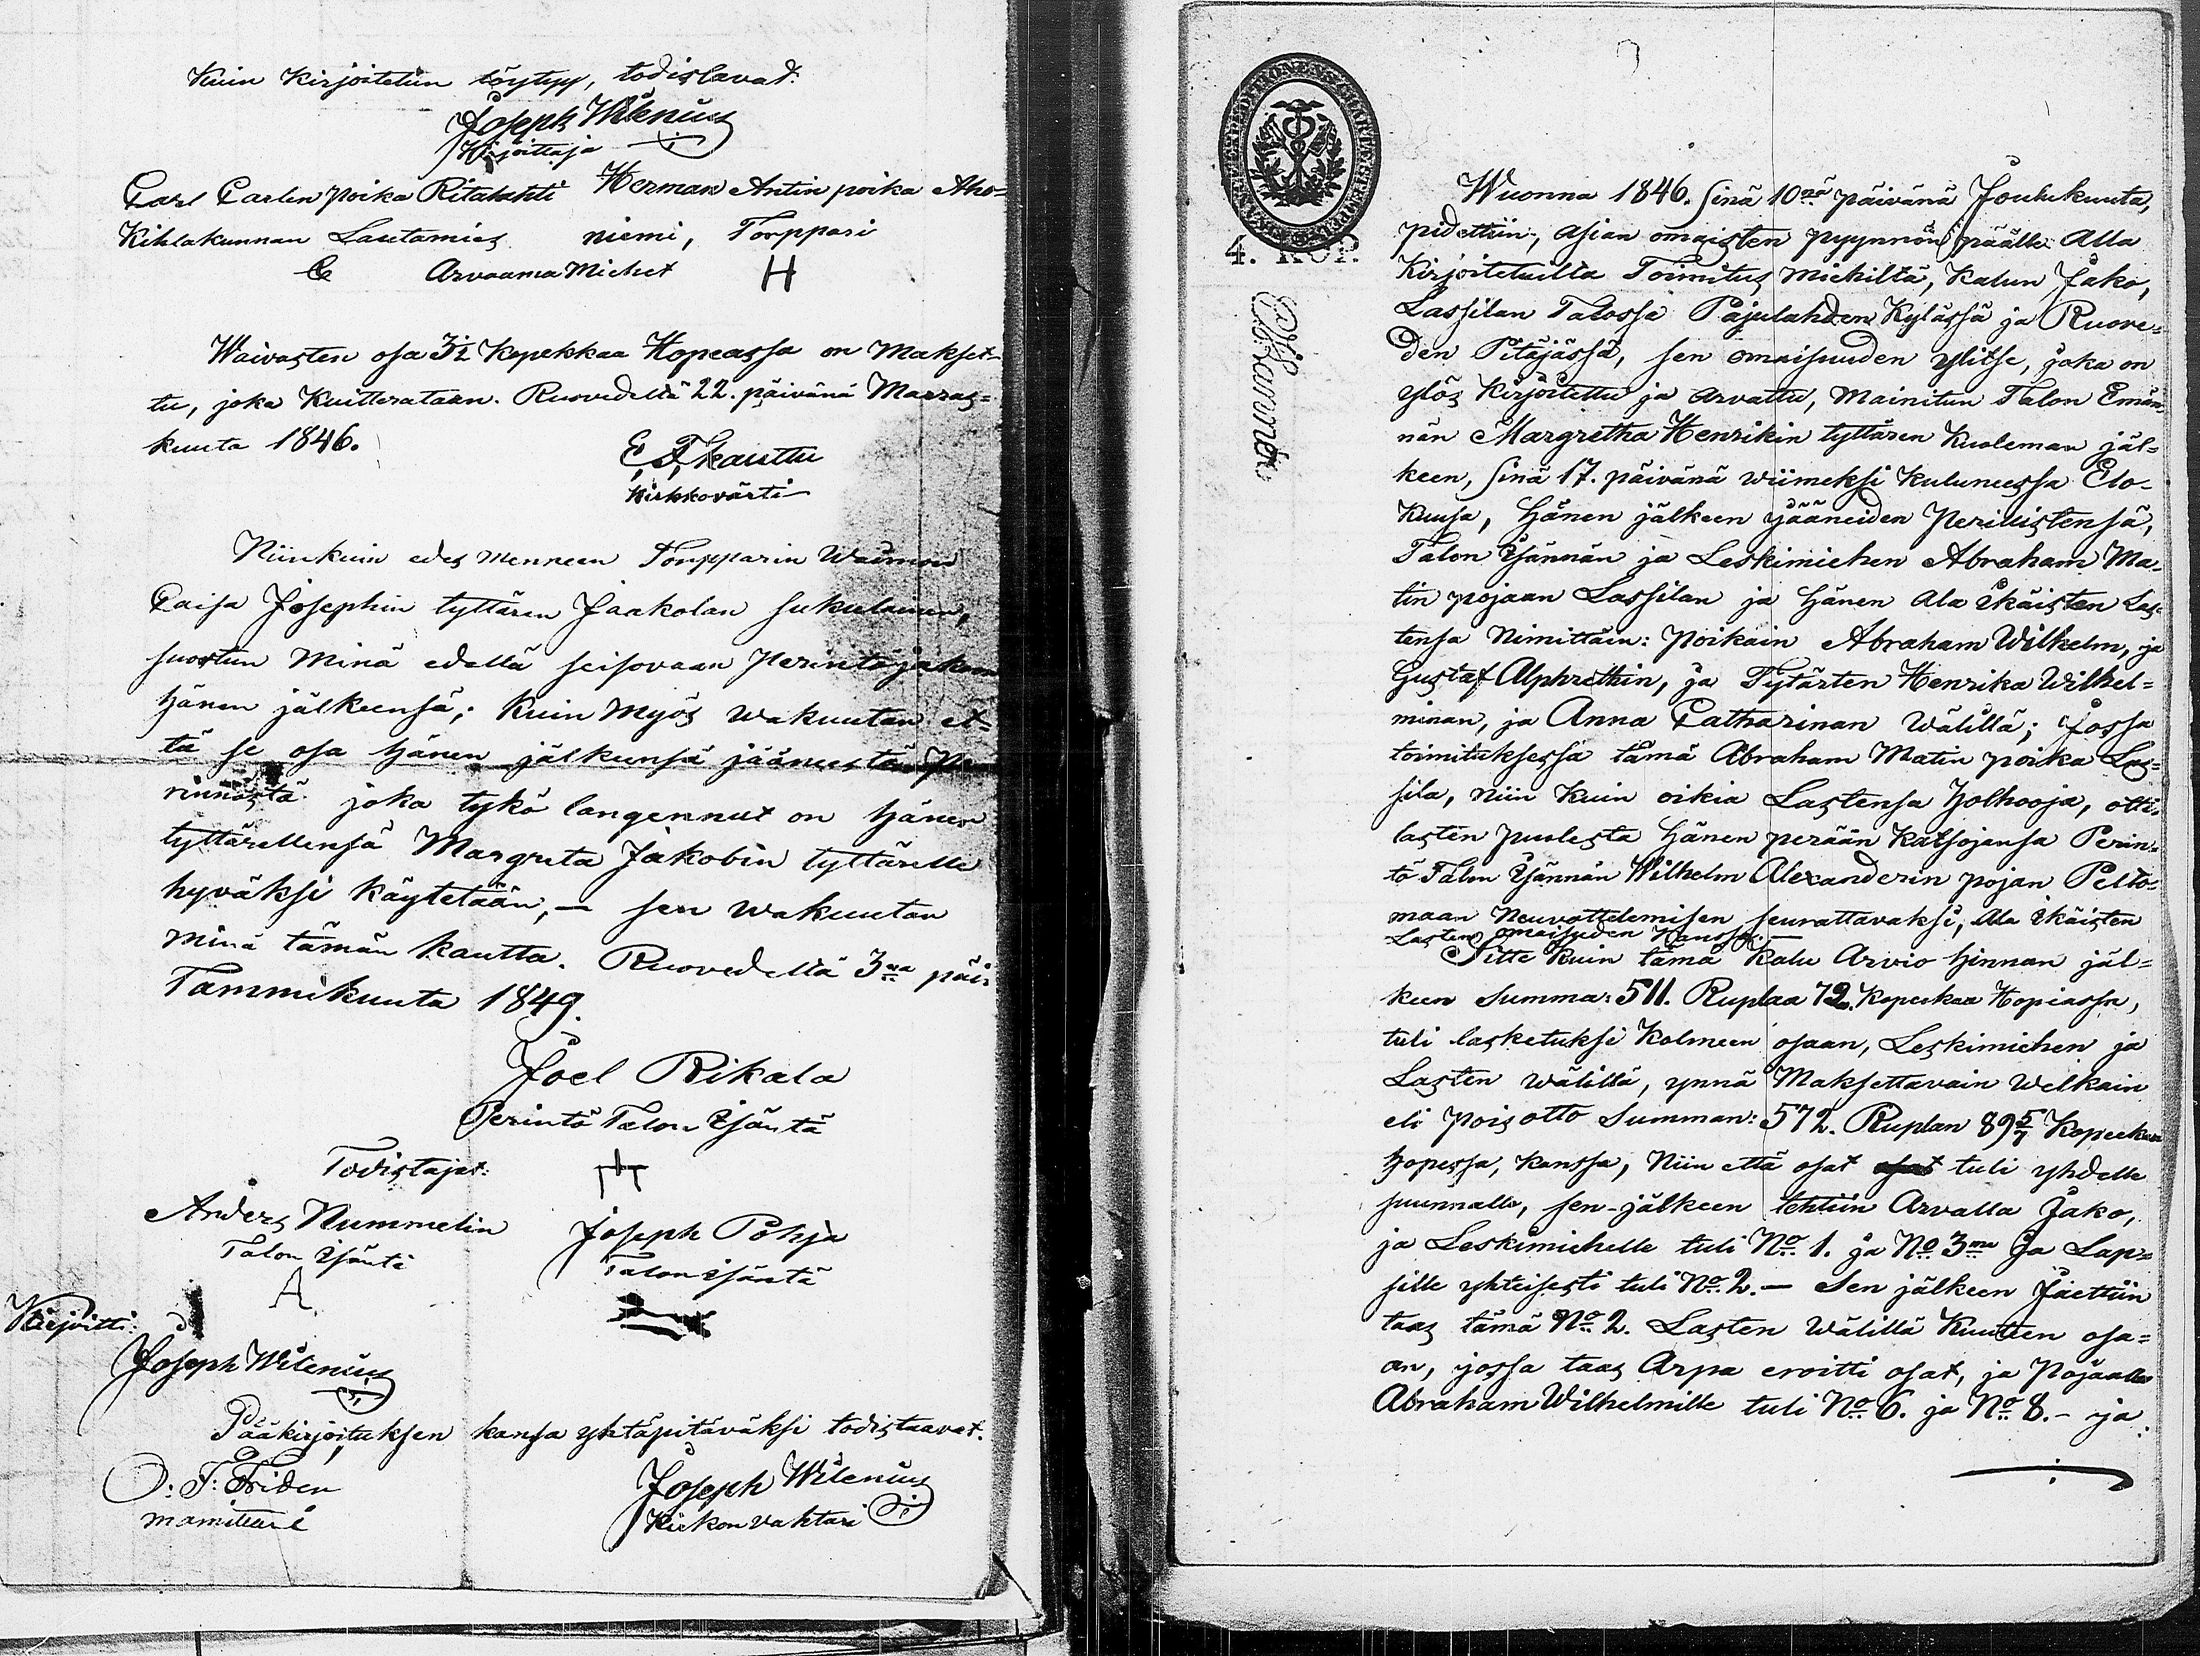 Kuin Kirjoitetun löytyy, todistavat:
Joseph Wilenius
Kirjoittaja
Carl Carlen poika Ritalahti Herman Antin poika Aho=
Kihlakunnan Lautamies niemi, Torppari
C Arvaama Miehet H
Waivasten osa 3½ Kopekkaa Hopeassa on Makset-
tu, joka Kuitterataan. Ruovedellä 22. päivänä Marras=
kuuta 1846.
E. F. Kauttu
Kirkkovärti
Niinkuin edes menneen Torpparin Waimon
Caisa Josephin tyttären Jaakolan sukulainen,
suostun Minä edellä seisovaan Perintö jakoon
hänen jälkeensä; Kuin Myös wakuutan et-
tä se osa hänen jälkeensä jääneestä Pe
rinnöstä joka tykö langennut on hänen
tyttärellensä Margreta Jakobin tyttärelle
hyväksi Käytetään, — sen wakuutan
Minä tämän kautta. Ruovedellä 3na päi:
Tammikuuta 1849.
Joel Rikala
Perintö Talon Isäntä
Todistajat:
Anders Nummelin Joseph Pohja
Talon Isäntä Talon Isäntä
A
Kirjoitti:
Joseph Wilenius
Pääkirjoituksen kansa yhtäpitäväksi todistaavat.
O. F. Friden Joseph Wilenius
Kirkon vahtari
4. KOP.
Wuonna 1846. Sinä 10nä päivänä Joulukuuta,
pidettiin, asian omaisten pyynnön päälle Alla
Kirjoitetuilta Toimitus Miehiltä, Kalun Jako,
Lassilan Talossa Pajulahden Kylässä ja Ruove=
den Pitäjässä, sen omaisuuden ylitse, joka on
ylös Kirjoitettu ja arvattu, Mainitun Talon Emän=
nän Margretha Henrikin tyttären Kuoleman jäl=
keen, Sinä 17. päivänä wiimeksi kuluneessa Elo=
Kuusa, Hänen jälkeen jääneiden Perillistensä,
Talon Isännän ja Leskimiehen Abraham Ma=
tin pojaan Lassilan ja Hänen Ala Ikäisten Las=
tensa Nimittäin: Poikain Abraham Wilhelm, ja
Gustaf Alphrethin, ja Tytärten Henrika Wilhel=
minan, ja Anna Catharinan Wälillä; Jossa
toimituksessa tämä Abraham Matin poika Las=
sila, niin Kuin oikia Lastensa Holhooja, otti
lasten puolesta Hänen perään Katsojansa Perin=
tö Talon Isännän Wilhelm Alexanderin pojan Pelto=
maan Neuvottelemisen seurattavaksi, Ala Ikäisten
Lasten omaisuden Kanssa. —
Sitte Kuin tämä Kalu Arvio hinnan jäl=
keen Summa: 511. Ruplaa 72. Kopeekaa Hopiassa,
tuli lasketuksi Kolmeen osaan, Leskimiehen ja
Lasten wälillä, ynnä Maksettavain Welkain
eli Pois otto Summan: 572. Ruplan 89 5/7 Kopeekan
Hopessa, Kanssa, Niin että osat tuli yhdelle
suunnalle, sen-jälkeen tehtiin Arvalla Jako,
ja Leskimiehelle tuli No. 1. ja No. 3me ja Lap=
sille yhteisesti tuli No. 2. — Sen jälkeen Jaettiin
taas tämä No. 2. Lasten Wälillä Kuuteen osa=
an, jossa taas Arpa eroitti osat, ja Pojaalle
Abraham Wilhelmille tuli No. 6. ja No. 8. - ja